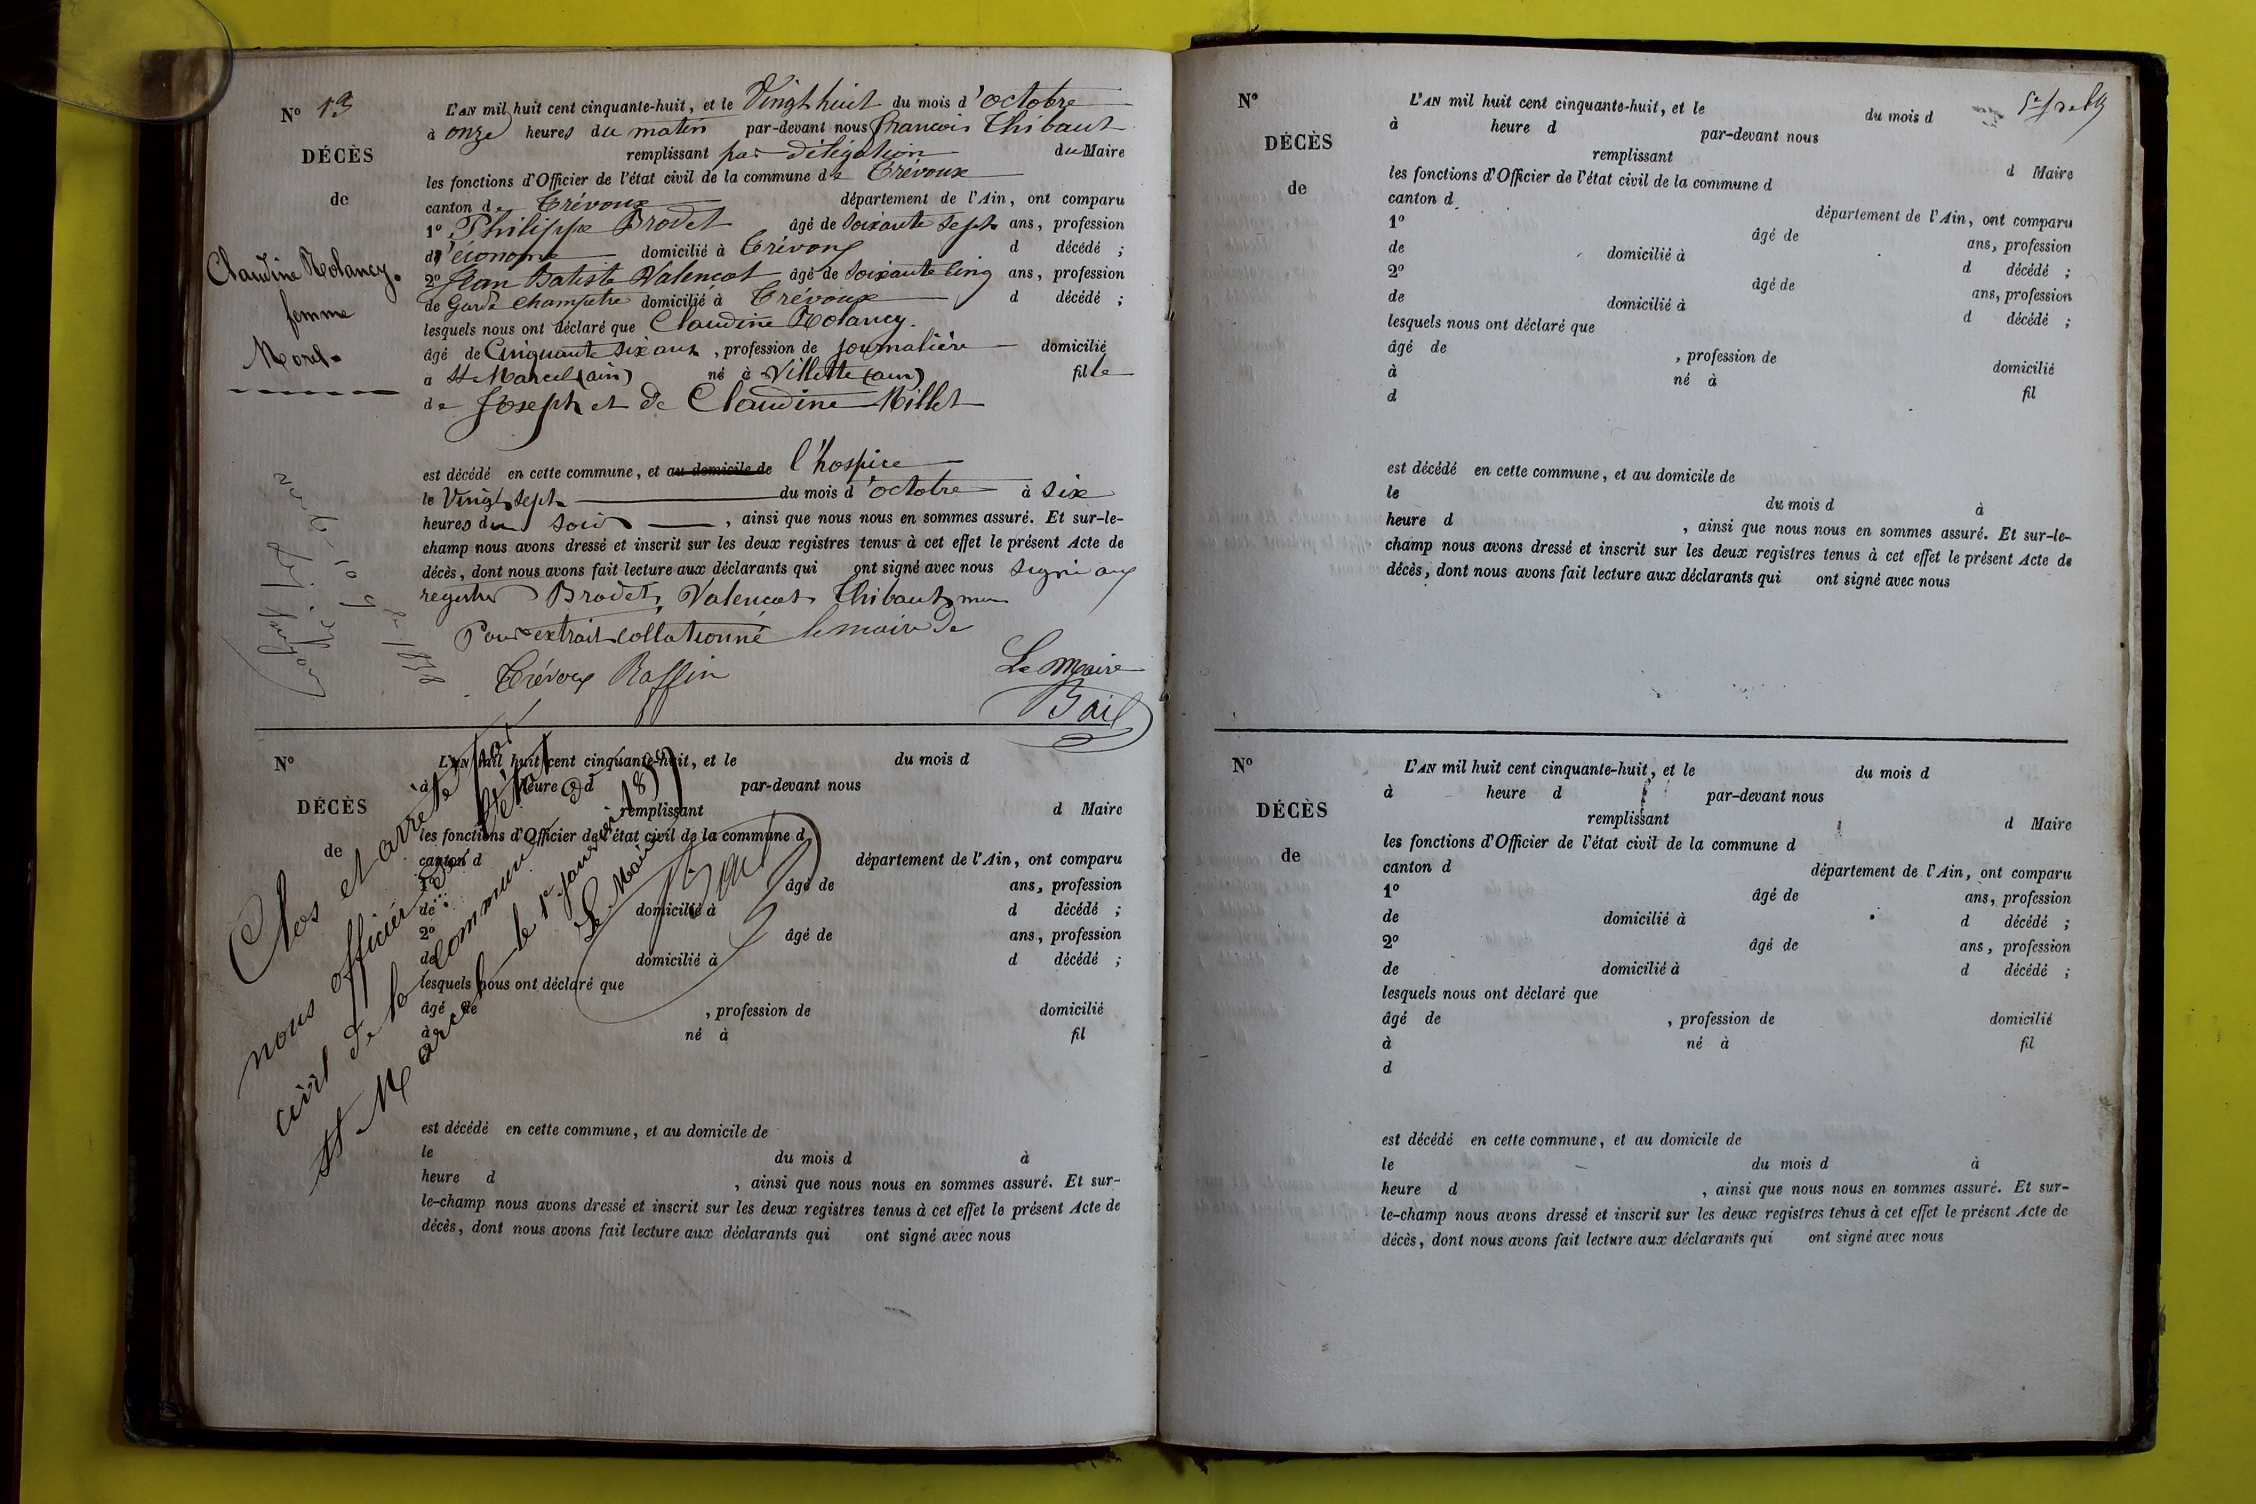 N° 13
DÉCÈS
de
Claudine Rolancy.
femme
Morel.
L'AN mil huit cent cinquante-huit, et le Vingt huit du mois d'octobre
à onze heures du matin par-devant nous françois Thibaut
remplissant par délégation du Maire
les fonctions d'Officier de l'état civil de la commune de Trévoux
canton de Trévoux département de l'Ain, ont comparu
1° Philippe Brodet âgé de Soixante Sept ans, profession
d'économe domicilié à Trévoux d décédé ;
2° Jean Batiste Valencot âgé de Soixante Cinq ans, profession
de Garde champetre domicilié à Trévoux d décédé ;
lesquels nous ont déclaré que Claudine Rolancy.
âgé de Cinquante six ans, profession de journalière domicilié
à St Marcel (ain) né à Villette (ain) fille
de Joseph et de Claudine Millet
est décédé en cette commune, et au domicile de l'hospice
le Vingt Sept du mois d'octobre à Six
heures du Soir, ainsi que nous nous en sommes assuré. Et sur-le-
champ nous avons dressé et inscrit sur les deux registres tenus à cet effet le présent Acte de
décès, dont nous avons fait lecture aux déclarants qui ont signé avec nous Signé aux
registres Brodet, Valencot Thibaut
Pour extrait collationné le maire de
Trévoux Raffin
Le Maire
Bail
N°
DÉCÈS
de
L'AN mil huit cent cinquante-huit, et le du mois d
à heure d par-devant nous
remplissant d Maire
les fonctions d'Officier de l'état civil de la commune d
canton d département de l'Ain, ont comparu
1° âgé de ans, profession
de domicilié à d décédé ;
2° âgé de ans, profession
de domicilié à d décédé ;
lesquels nous ont déclaré que
âgé de , profession de domicilié
à né à fil
est décédé en cette commune, et au domicile de
le du mois d à
heure d , ainsi que nous nous en sommes assuré. Et sur-
le-champ nous avons dressé et inscrit sur les deux registres tenus à cet effet le présent Acte de
décès, dont nous avons fait lecture aux déclarants qui ont signé avec nous
Clos et arreté par
nous officier de l'état
civil de la commune de
St Marcel le 1er janvier 1859
Le Maire
Bail
N°
DÉCÈS
de
L'AN mil huit cent cinquante-huit, et le du mois d
à heure d par-devant nous
remplissant d Maire
les fonctions d'Officier de l'état civil de la commune d
canton d département de l'Ain, ont comparu
1° âgé de ans, profession
de domicilié à d décédé ;
2° âgé de ans, profession
de domicilié à d décédé ;
lesquels nous ont déclaré que
âgé de , profession de domicilié
à né à fil
d
est décédé en cette commune, et au domicile de
le du mois d à
heure d , ainsi que nous nous en sommes assuré. Et sur-le-
champ nous avons dressé et inscrit sur les deux registres tenus à cet effet le présent Acte de
décès, dont nous avons fait lecture aux déclarants qui ont signé avec nous
N°
DÉCÈS
de
L'AN mil huit cent cinquante-huit, et le du mois d
à heure d par-devant nous
remplissant d Maire
les fonctions d'Officier de l'état civil de la commune d
canton d département de l'Ain, ont comparu
1° âgé de ans, profession
de domicilié à d décédé ;
2° âgé de ans, profession
de domicilié à d décédé ;
lesquels nous ont déclaré que
âgé de , profession de domicilié
à né à fil
d
est décédé en cette commune, et au domicile de
le du mois d à
heure d , ainsi que nous nous en sommes assuré. Et sur-
le-champ nous avons dressé et inscrit sur les deux registres tenus à cet effet le présent Acte de
décès, dont nous avons fait lecture aux déclarants qui ont signé avec nous